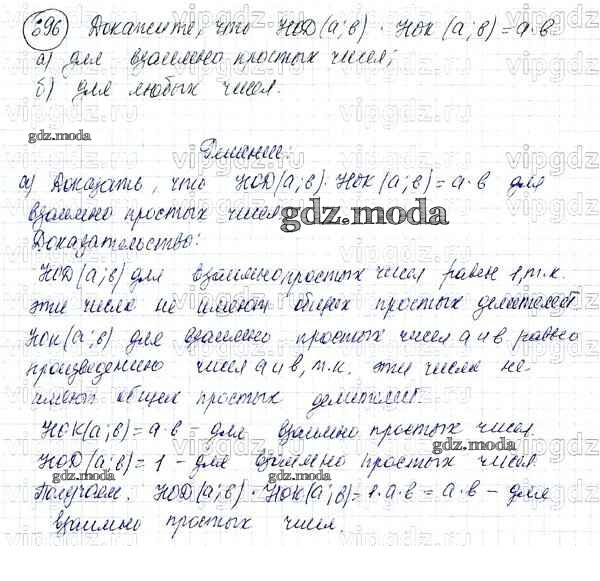 296 Докажите, что НОД(а;в) · НОК(а;в)=а·в
а) для взаимно простых чисел;
б) для любых чисел.
gdz.moda
Решение.
а) Доказать, что НОД(а;в)·НОК(а;в)=а·в для
взаимно простых чисел
gdz.moda
Доказательство:
НОД(а;в) для взаимно простых чисел равен 1, т.к.
эти числа не имеют общих простых делителей
НОК(а;в) для взаимно простых чисел а и в равно
произведению чисел а и в, т.к. эти числа не
имеют общих простых делителей
НОК(а;в)=а·в - для взаимно простых чисел.
gdz.moda
НОД(а;в)=1 - для взаимно простых чисел.
gdz.moda
Получаем: НОД(а;в)·НОК(а;в)=1·а·в=а·в - для
gdz.moda
взаимно простых чисел.